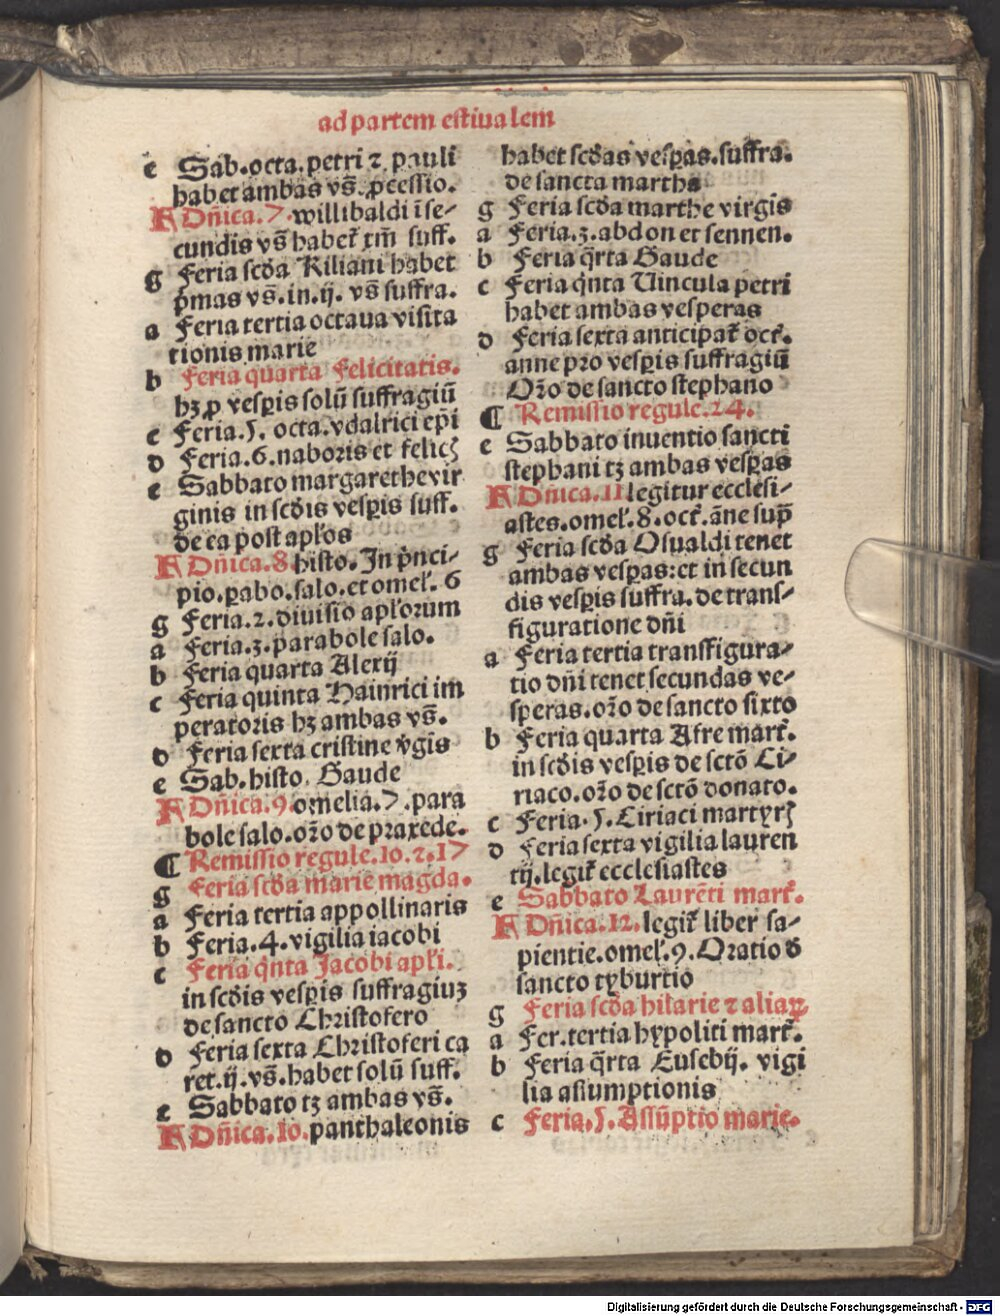 ad partem estiualem
e Sab.octa.petri ⁊ pauli
habet ambas vs̄. ꝓcessio.
A Dn̄ica.7.willibaldi ī se-
cundis vs̄ habet᷑ xm̄ suff.
g Feria scd̄a Kiliani habet
p̄mas vs̄.in.ij. vs̄ suffra.
a Feria tertia octaua visita
tionis marie
b Feria quarta Felicitatis.
hꝫ ꝓ vesꝑis solū suffragiū
c Feria.5. octa.vdalrici ep̄i
d Feria.6.naboris et felic
e Sabbato margarethe vir
ginis in scd̄is vesꝑis suff.
de ea post apl'os
A Dn̄ica.8 histo. In p̄nci-
pio.ꝑabo.salo.et omel'. 6
g Feria.2.diuisio apl'orum
a Feria.3.parabole salo.
b Feria quarta Alexij
c Feria quinta Hainrici im
peratoris hꝫ ambas vs̄.
d Feria sexta cristine v̄gis
e Sab.histo. Gaude
A Dn̄ica.9 omelia.7.para
bole salo.or̄o de praxede.
¶ Remissio regule.10.⁊.17
g Feria scd̄a marie magda.
a Feria tertia appollinaris
b Feria.4.vigilia iacobi
c Feria q̄nta Jacobi apl'i.
in scd̄is vesꝑis suffragiuꝫ
de sancto Christofero
d Feria sexta Christoferi ca
ret.ij.vs̄.habet solū suff.
e Sabbato tꝫ ambas vs̄.
A Dn̄ica.10.panthaleonis
habet scd̄as vesꝑas.suffra.
de sancta martha
g Feria scd̄a marthe virgis
a Feria.3.abdon et sennen.
b Feria q̄rta Gaude
c Feria q̄nta Uincula petri
habet ambas vesperas
d Feria sexta anticipat᷑ oct᷑.
anne pro vesꝑis suffragiū
Or̄o de sancto stephano
¶ Remissio regule.24.
e Sabbato inuentio sancti
stephani tꝫ ambas vesꝑas
A Dn̄ica.11 legitur ecclesi-
astes.omel'.8.oct᷑.āne sup̄
g Feria scd̄a Osualdi tenet
ambas vesꝑas:et in secun
dis vesꝑis suffra.de trans-
figuratione dn̄i
a Feria tertia transfigura-
tio dn̄i tenet secundas ve-
speras.or̄o de sancto sixto
b Feria quarta Afre mart᷑.
in scd̄is vesꝑis de sctō Ci-
riaco.or̄o de sctō donato.
c Feria.5.Ciriaci martyrꝫ
d Feria sexta vigilia lauren
tij.legit᷑ ecclesiastes
e Sabbato Laurēti mart᷑.
A Dn̄ica.12.legit᷑ liber sa-
pientie.omel'.9.Oratio d̄
sancto tyburtio
g Feria scd̄a hilarie ⁊ aliaꝝ
a Fer.tertia hypoliti mart᷑.
b Feria q̄rta Eusebij. vigi
lia assumptionis
c Feria.5.Assūptio marie.
Digitalisierung gefördert durch die Deutsche Forschungsgemeinschaft - DFG